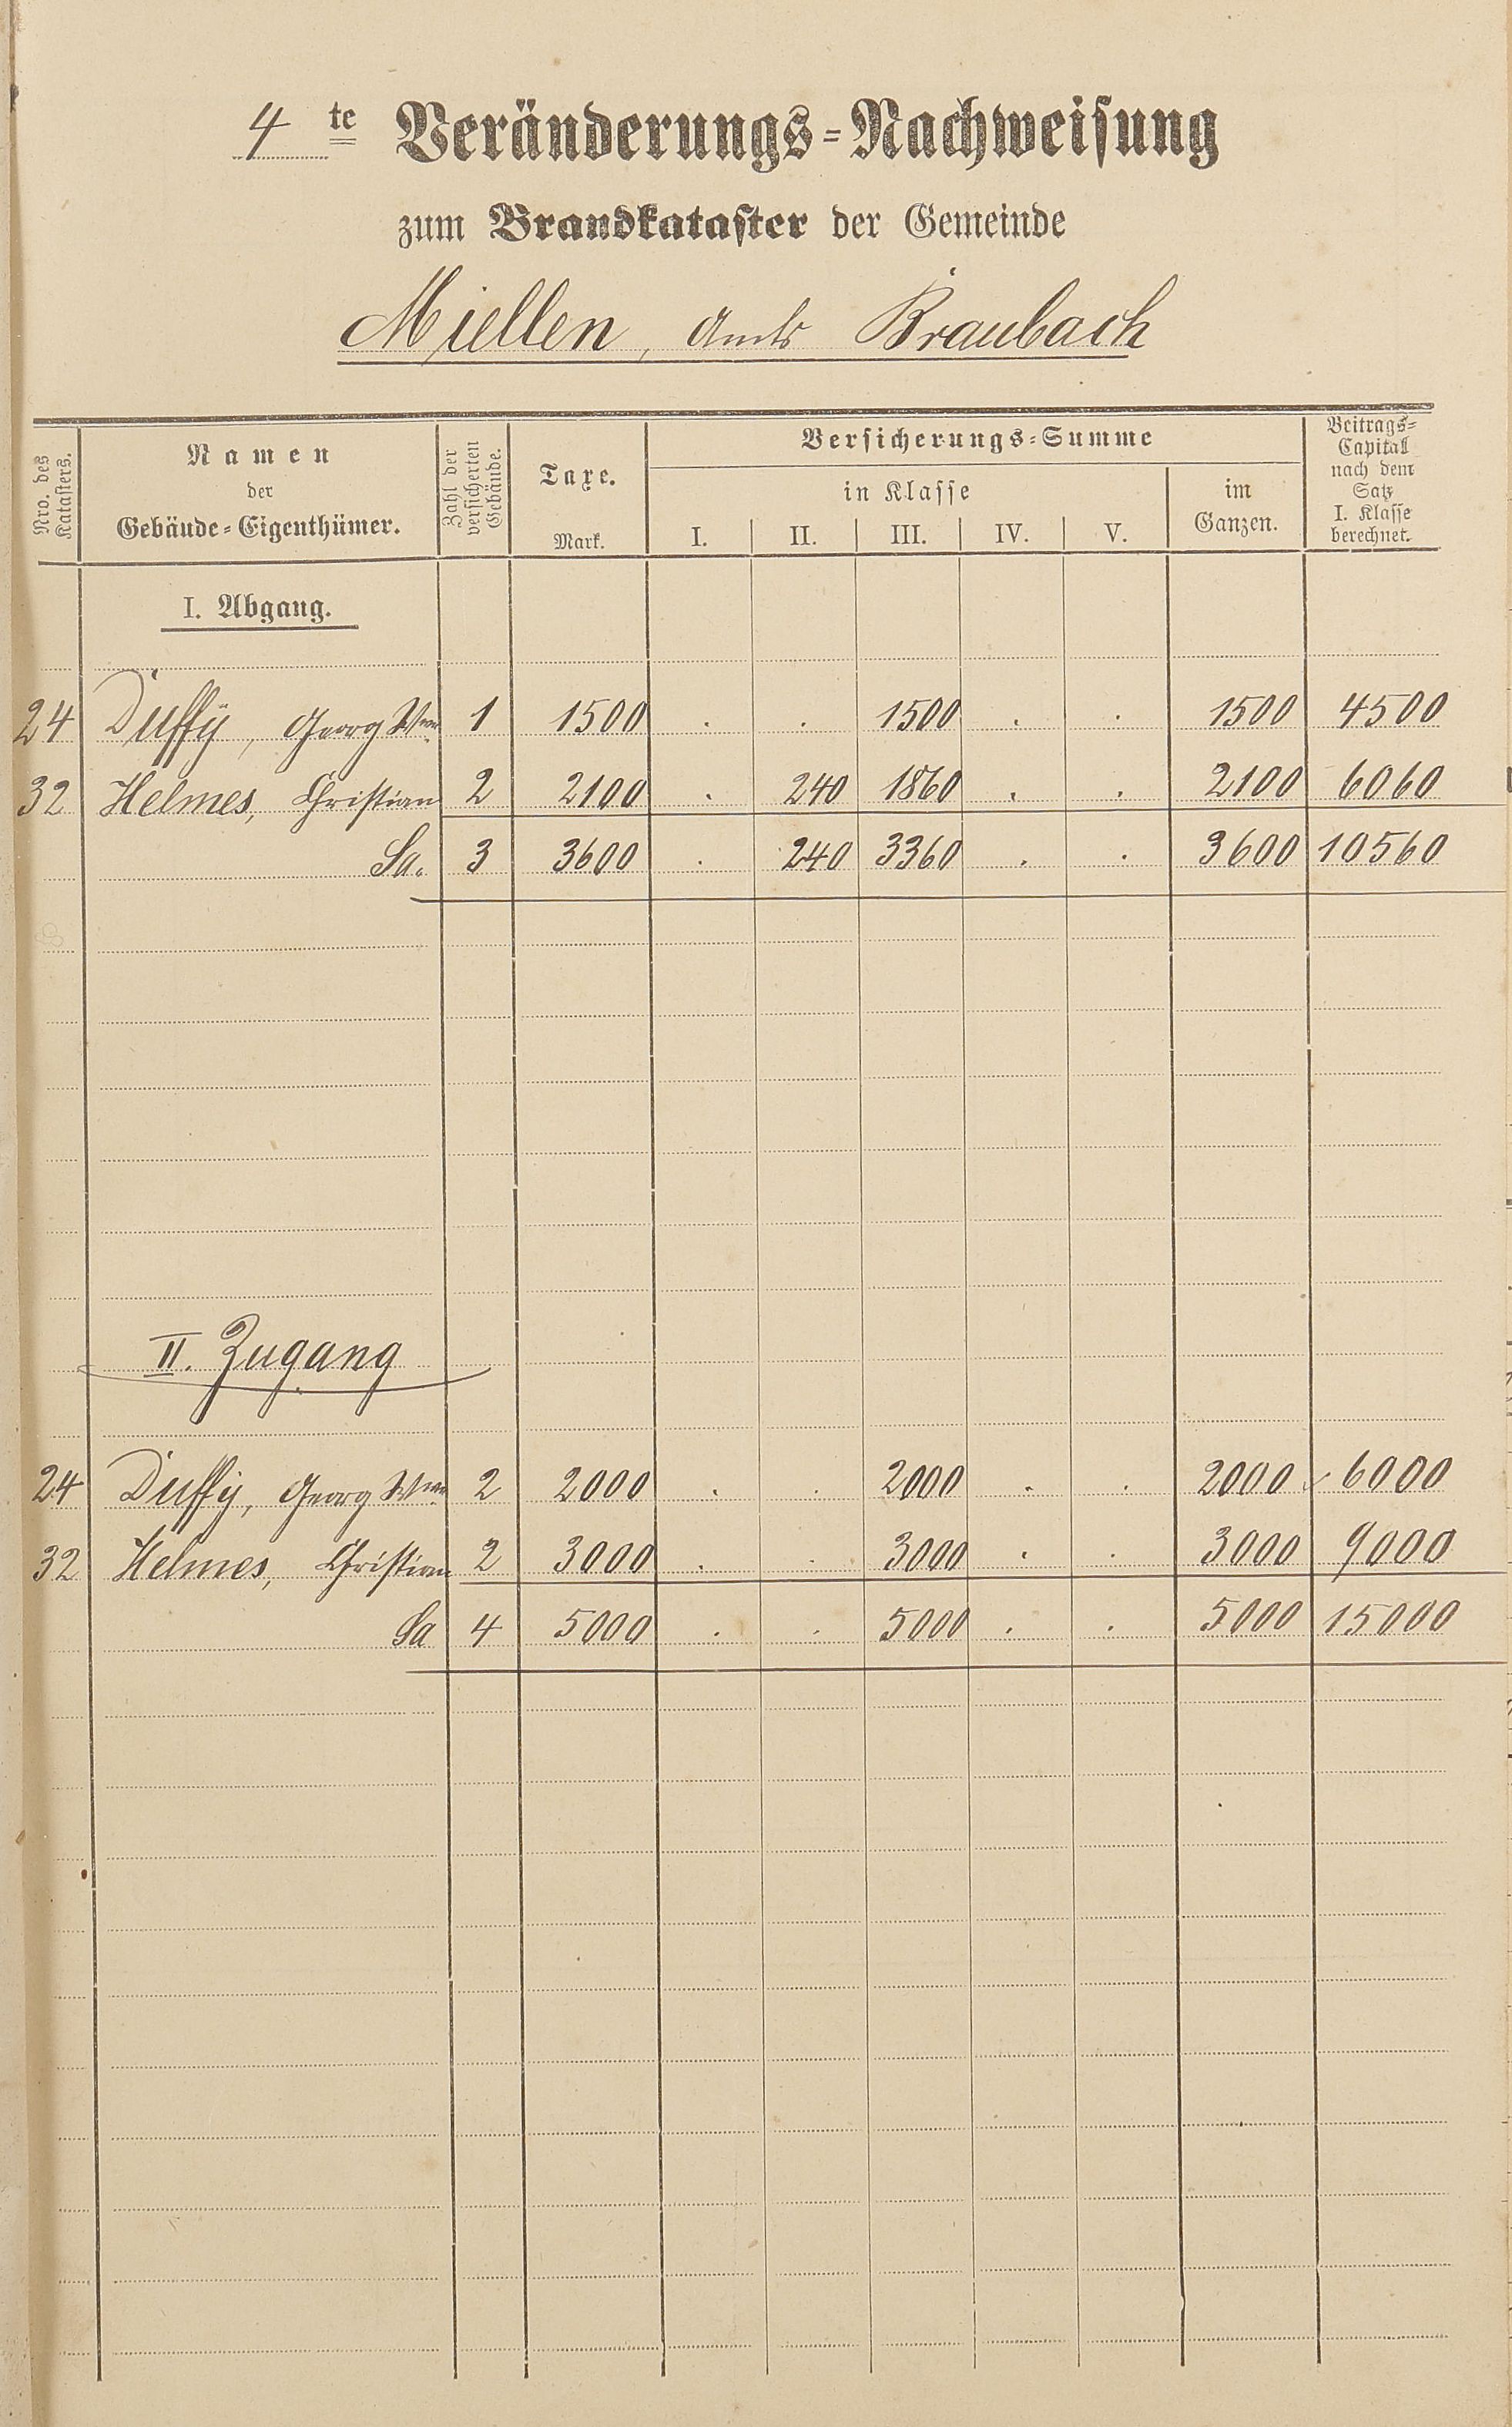 4te Veränderungs-Nachweisung
zum Brandkataster der Gemeinde
Miellen, Amts Braubach
Nro. des Katasters.
Namen
der
Gebäude-Eigenthümer.
Zahl der versicherten Gebäude.
Taxe.
Mark.
Versicherungs-Summe
in Klasse
I. II. III. IV. V.
im
Ganzen.
Beitrags-
Capital
nach dem
Satz
I. Klasse
berechnet.
I. Abgang.
24 Duffÿ, Georg Wwe. 1 1500 . . 1500 . . 1500 4500
32 Helmes, Christian 2 2100 . 240 1860 . . 2100 6060
Sa. 3 3600 . 240 3360 . . 3600 10560
II. Zugang
24 Duffÿ, Georg Wwe 2 2000 . . 2000 . . 2000 6000
32 Helmes, Christian 2 3000 . . 3000 . . 3000 9000
Sa 4 5000 . . 5000 . . 5000 15000